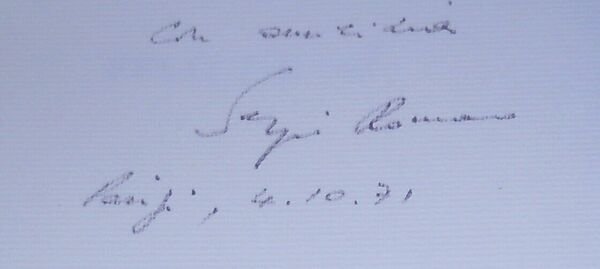 con amicizia
Sergio Romano
Parigi, 4.10.91